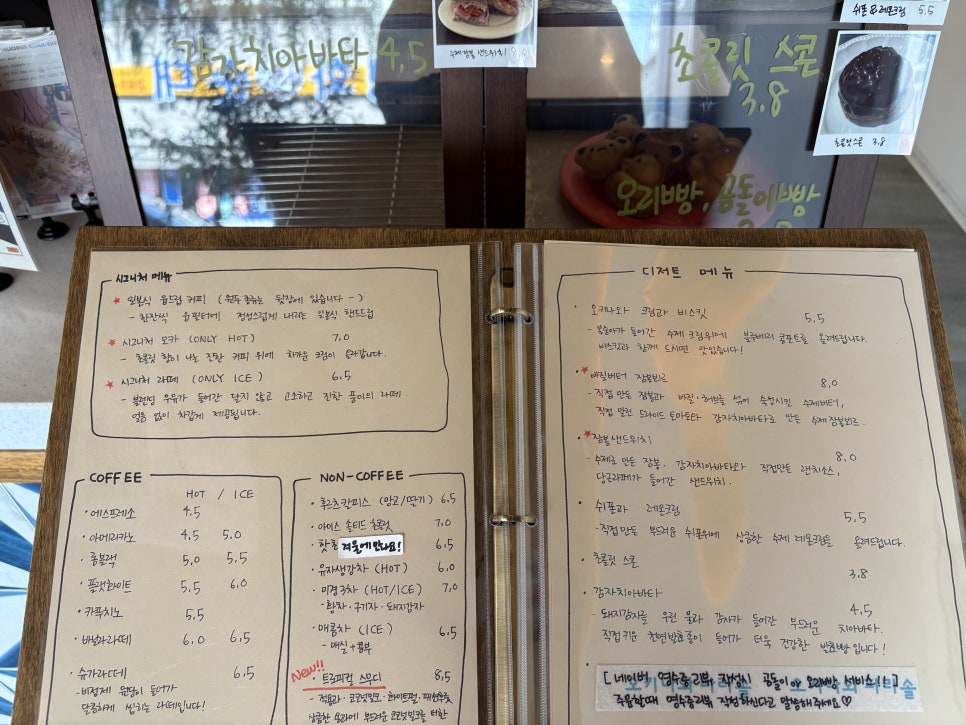 감자치아바타 4,5
수제잠봉 샌드위치 8,0
초콜릿 스콘
3.8
쉬폰&레몬크림 5.5
초콜릿스콘 3,8
오리빵, 곰돌이빵
시그니처 메뉴
일본식 융드립 커피 (원두 종류는 뒷장에 있습니다 -)
- 한잔씩 융필터에 정성스럽게 내리는 일본식 핸드드립
시그니처 모카 (ONLY HOT) 7,0
- 초콜릿 향이 나는 진한 커피 위에 차가운 크림이 올라갑니다.
시그니처 라떼 (ONLY ICE) 6,5
- 블렌딩 우유가 들어간 달지 않고 고소하고 진한 풍미의 라떼.
얼음 없이 차갑게 제공됩니다.
COFFEE
HOT / ICE
· 에스프레소 4,5
· 아메리카노 4,5 5.0
· 롱블랙 5,0 5,5
· 플랫화이트 5,5 6,0
· 카푸치노 5,5
· 바닐라라떼 6,0 6,5
· 슈가라떼 6,5
- 비정제 원당이 들어가
달콤하게 씹히는 라떼입니다!
NON-COFFEE
· 후르츠칼피스 (망고/딸기) 6,5
· 아이스 솔티드 초콜릿 7,0
· 핫초 겨울에 만나요! 6,5
· 유자생강차 (HOT) 6,0
· 미경3차 (HOT/ICE) 7,0
- 황차·구기자·돼지감자
· 매콤차 (ICE) 6,5
- 매실+콤부
New!!
· 트로피컬 스무디 8,5
상큼한 묘리에 부드러운 코코넛밀크를 더한
디저트 메뉴
· 오키나와 크림과 비스킷 5,5
- 복숭아가 들어간 수제 크림위에 블루베리 콩포트를 올려드립니다.
비스킷과 함께 드시면 맛있습니다!
· 바질버터 잠봉뵈르 8,0
- 직접 만든 잠봉과 바질·허브를 섞어 숙성시킨 수제버터,
직접 말린 드라이드 토마토와 감자치아바타로 만든 수제 잠봉뵈르.
· 잠봉샌드위치 8,0
- 수제로 만든 잠봉. 감자치아바타와 직접만든 랜치소스,
당근라페가 들어간 샌드위치.
· 쉬폰과 레몬크림 5,5
- 직접만든 부드러운 쉬폰위에 상큼한 수제 레몬크림을 올려드립니다.
· 초콜릿 스콘 3.8
· 감자치아바타 4,5
- 돼지감자를 우린 물과 감자가 들어간 부드러운 치아바타.
직접키운 천연발효종이 들어가 더욱 건강한 발효빵 입니다!
[네이버 영수증리뷰 작성시 곰돌이 or 오리빵 서비스!!]
주문할때 영수증리뷰 작성하신다고 말씀해주세요♡